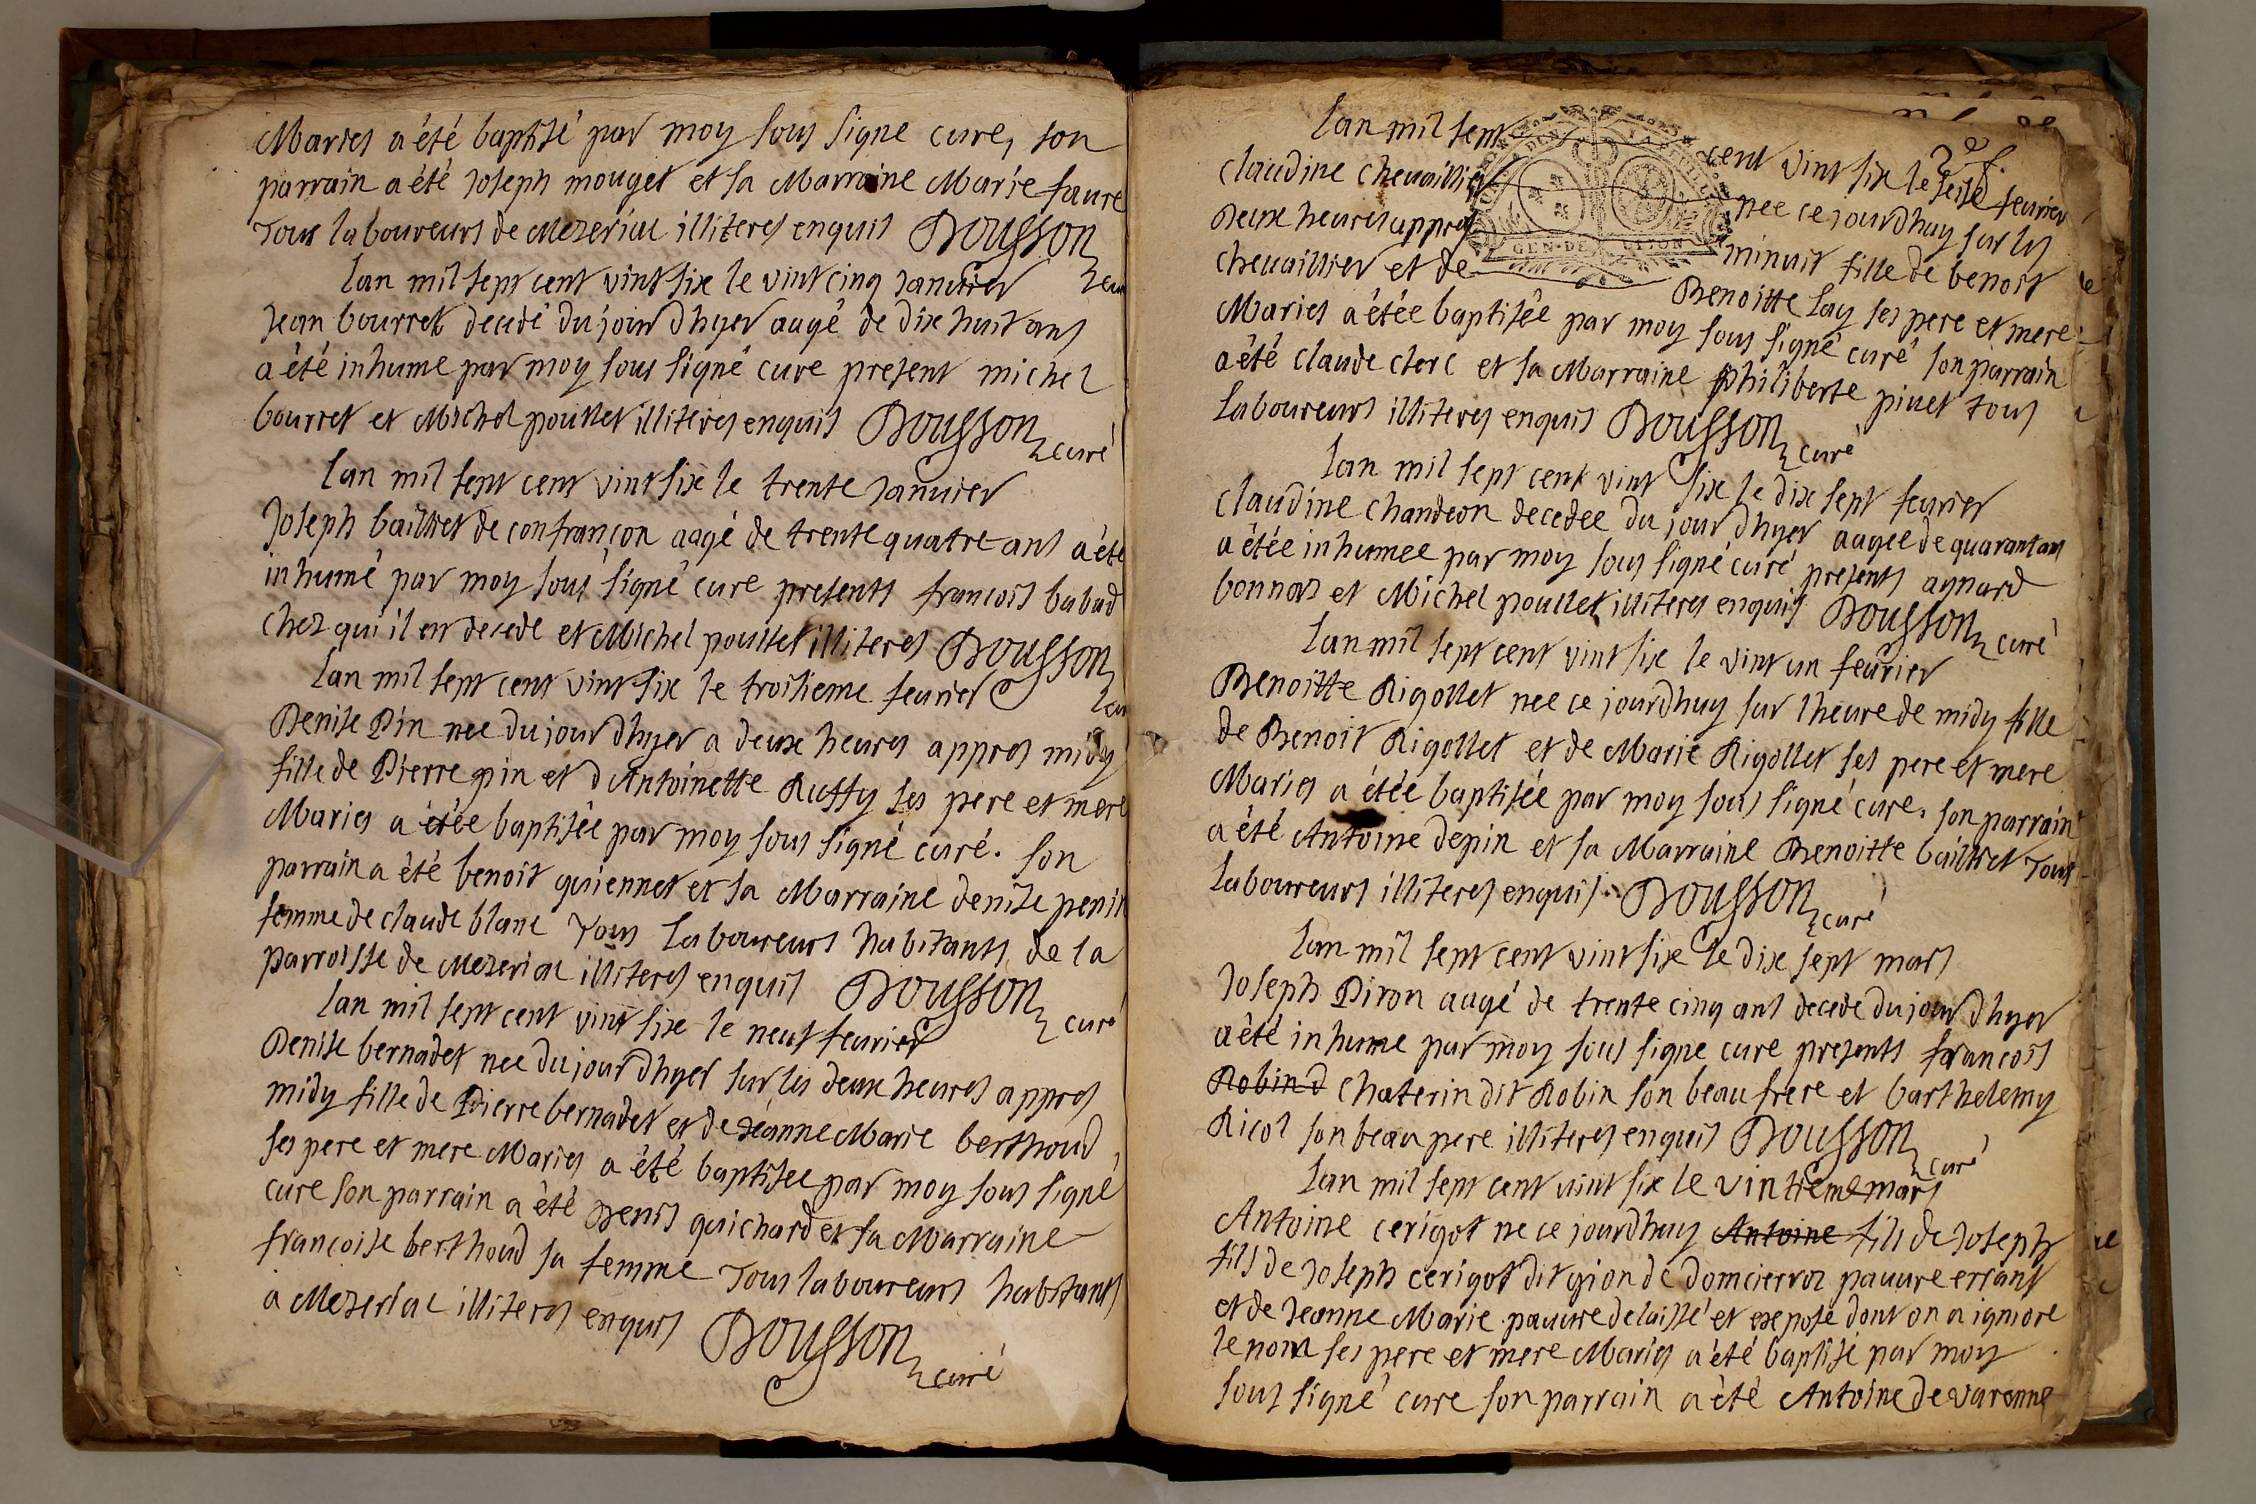 Maries a été baptisé par moy sous signe cure, son
parrain a été Joseph mouget et sa Marraine Marie faure
Tous laboureurs de Mezeriac illiteres enquis Dousson
cure
Lan mil sept cent vint six le vint cinq Janvier
Jean bourret decedé du jour dhyer aagé de dix huit ans
a été inhume par moy sous signé cure present michel
bourret et Michel poullet illiteres enquis Dousson curé
Lan mil sept cent vint six le trente Janvier
Joseph bailliet de confrançon aagé de trente quatre ans a été
inhumé par moy sous signé cure presents francois babad
chez qui il en decede et Michel poullet illiteres Dousson
cure
Lan mil sept cent vint six le troisieme feurier
Denise Pin nee du jour dhyer a deux heures appres midy
fille de Pierre pin et d Antoinette Ruffy ses pere et mere
Maries a étée baptisée par moy sous signé curé. son
parrain a été benoit guiennet et sa Marraine denise penin
femme de claude blanc Tous laboureurs habitants de la
parroisse de Mezeriac illiteres enquis Dousson curé
Lan mil sept cent vint six le neuf feurier
Denise bernadet nee du jour dhyer sur les deux heures appres
midy fille de Pierre bernadet et de Jéanne Marie berthoud
ses pere et mere Maries a été baptisee par moy sous signé
cure son parrain a été Denis guichard et sa Marraine
francoise berthoud sa femme Tous laboureurs habitants
a Mezeriac illiteres enquis Dousson curé
Lan mil sept cent vint six le seise feurier
claudine cheuaillier nee ce jourdhuy sur les
Deux heures appres minuit fille de benoit
cheuaillier et de Benoitte Lay ses pere et mere
Maries a étée baptisée par moy sous signé curé son parrain
a été claude clerc et sa Marraine philiberte piuet tous
laboureurs illiteres enquis Dousson curé
GEN·DE LYON
Lan mil sept cent vint six le dix sept feurier
claudine chandeon decedee du jour dhyer aagee de quarantans
a étée inhumee par moy sous signé curé presents aynard
bonnaz et Michel poullet illiteres enquis Dousson curé
Lan mil sept cent vint six le vint un feurier
Benoitte Rigollet nee ce jourdhuy sur lheure de midy fille
de Benoit Rigollet et de Marie Rigollet ses pere et mere
Maries a étée baptisée par moy sous signé cure. son parrain
a été Antoine depin et sa Marraine Benoitte bailliet Tous
laboureurs illiteres enquis. Dousson curé
Lan mil sept cent vint six le dix sept mars
Joseph Piron aagé de trente cinq ans decede du jour dhyer
a été inhume par moy sous signe cure presents francois
Robin d chaterin dit Robin son beau frere et barthelemy
Ricol son beau pere illiteres enquis Dousson curé
Lan mil sept cent vint six le vintieme mars
Antoine cerigot ne ce jourdhuy Antoine fils de Joseph
fils de Joseph cerigot dit gion de domcierroz pauure errant
et de Jeanne Marie pauure delaissé et exposé dont on a ignore
le nom ses pere et mere Maries a été baptisé par moy
sous signé cure son parrain a été Antoine de varenne